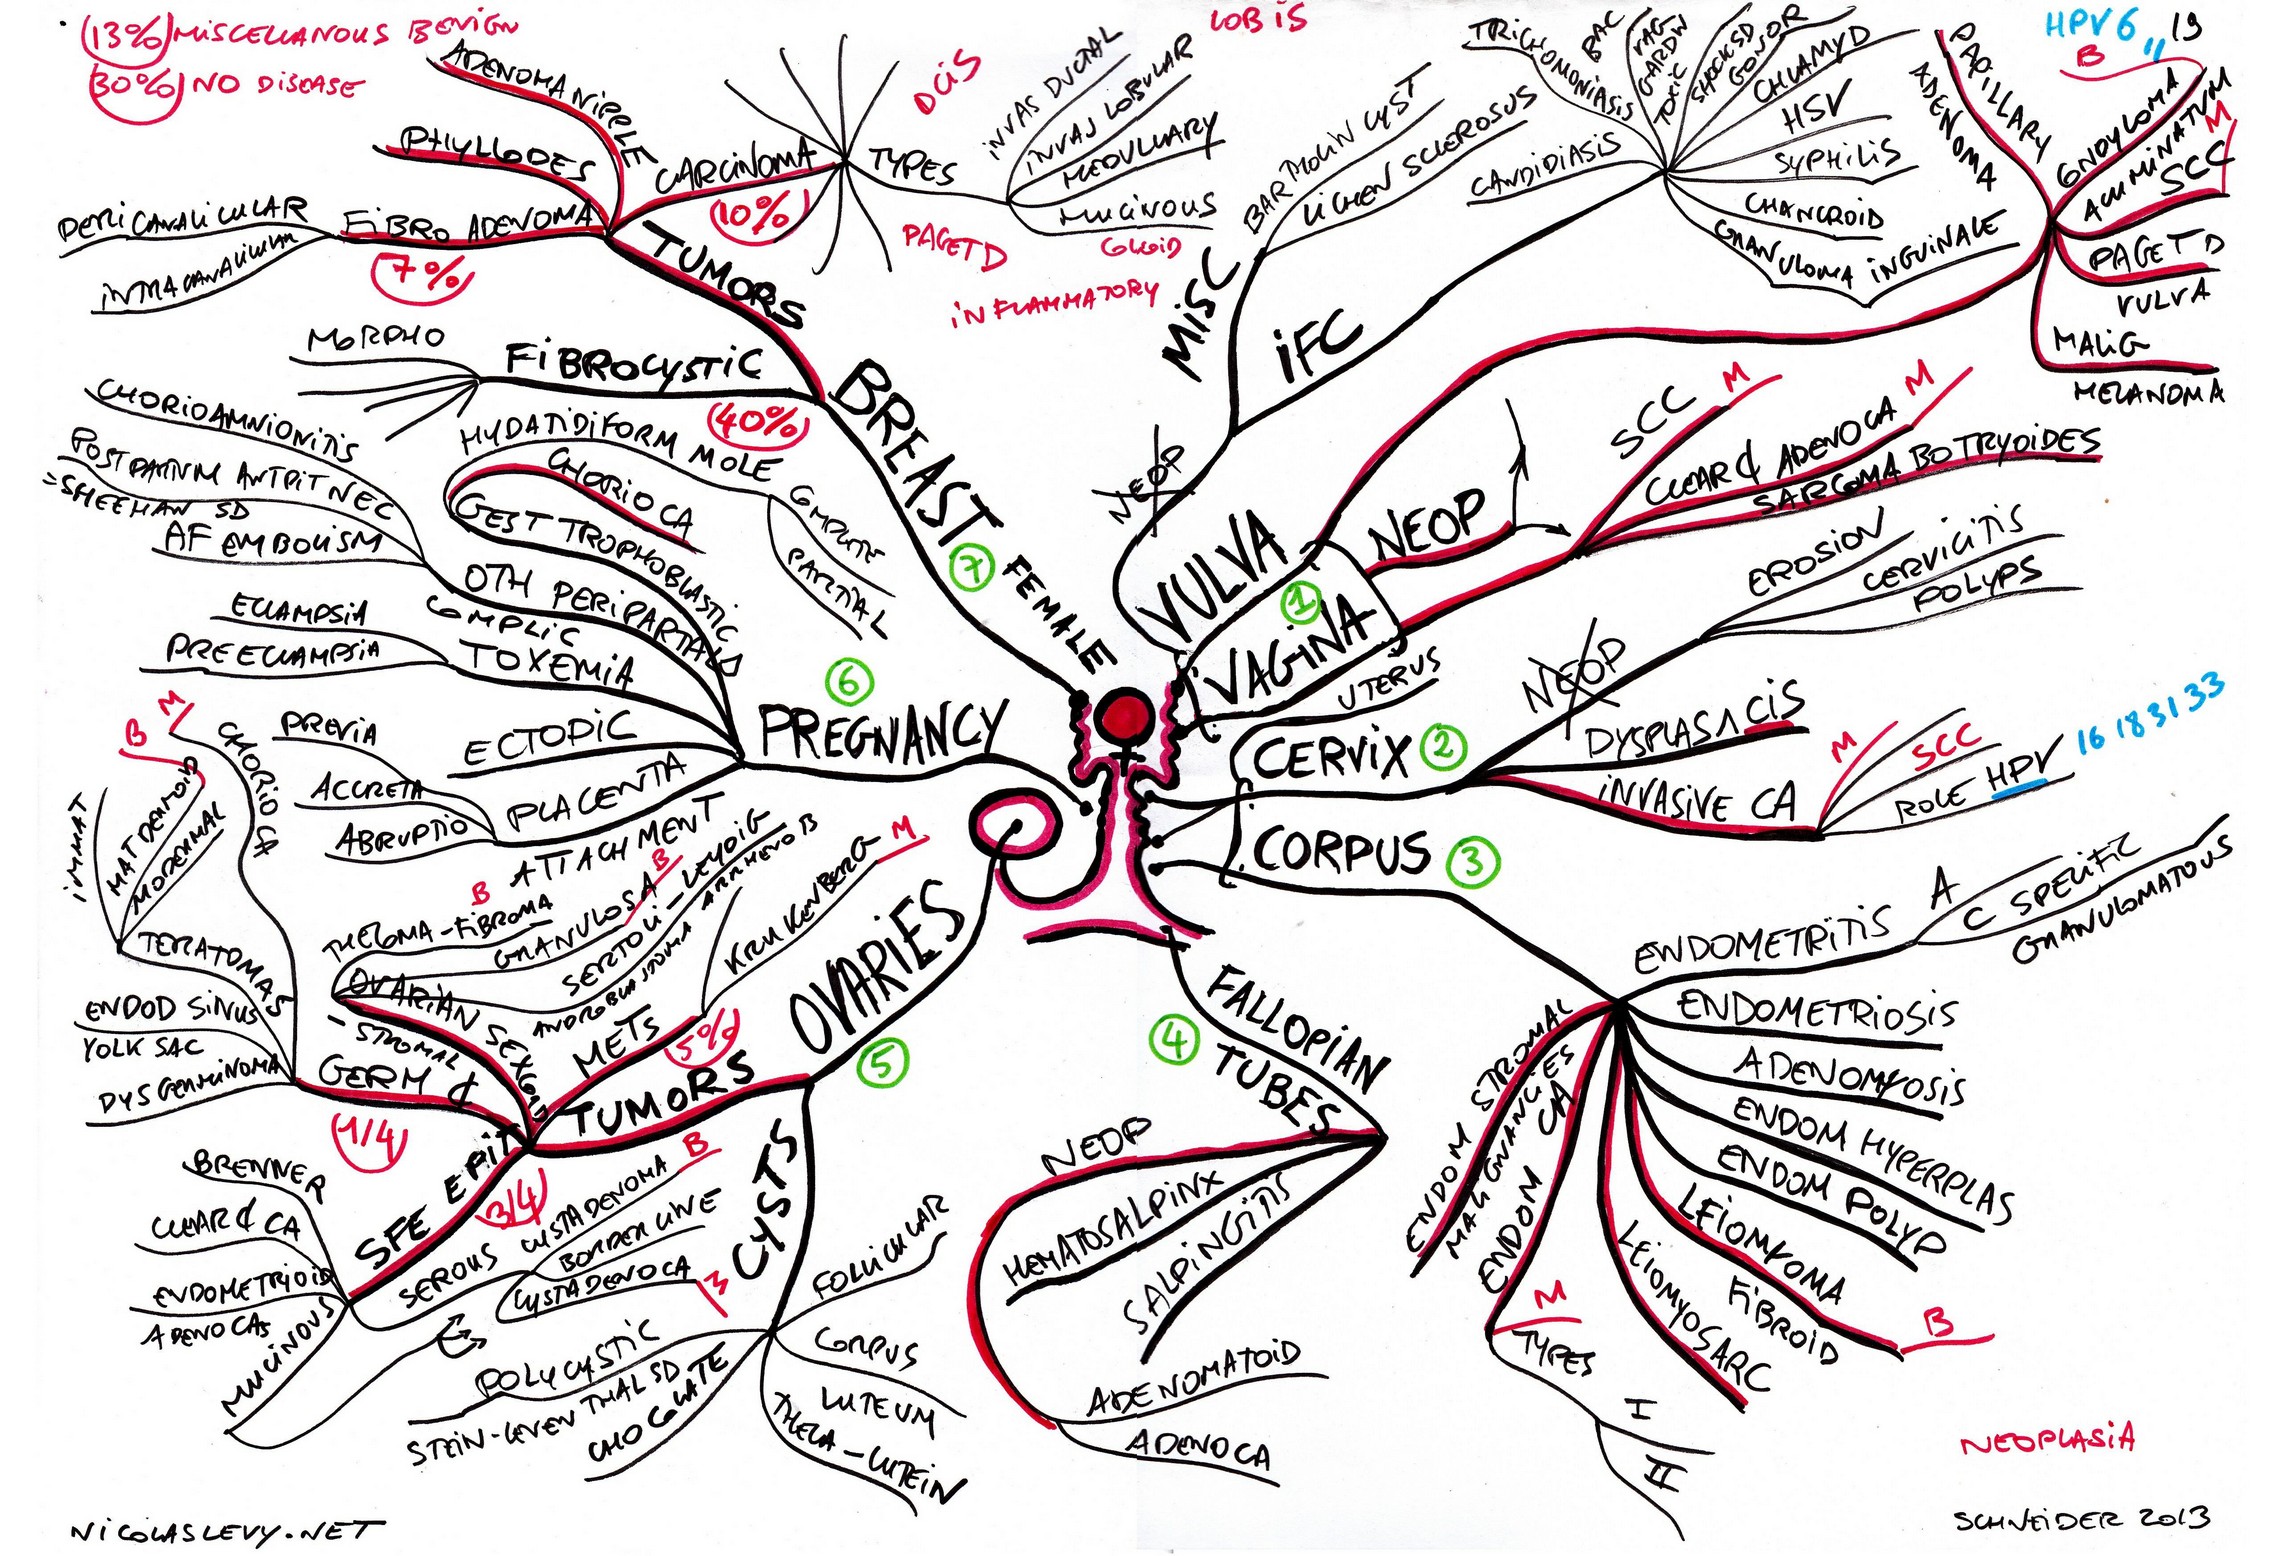 13% MISCELLANOUS BENIGN
30% NO DISEASE
ADENOMA NIPPLE
PHYLLODES
FIBRO ADENOMA
7%
PERICANALICULAR
INTRACANALICULAR
CARCINOMA
10%
TYPES
DCIS
LOBIS
INVAS DUCTAL
INVAS LOBULAR
MEDULLARY
MUCINOUS
COLLOID
PAGET D
INFLAMMATORY
TUMORS
MORPHO
FIBROCYSTIC
40%
BREAST
7
FEMALE
MISC
BARTHOLIN CYST
LICHEN SCLEROSUS
IFC
TRICHOMONIASIS
BAC VAG
GARDN
TOXIC SHOCK SD
GONOR
CHLAMYD
HSV
SYPHILIS
CHANCROID
GRANULOMA INGUINALE
CANDIDIASIS
PAPILLARY
ADENOMA
HPV 6 11 19
B
CONDYLOMA
ACUMINATUM
M
SCC
PAGET D
VULVA
MALIG
MELANOMA
NEOP
VULVA
1
VAGINA
NEOP
SCC M
CLEAR ¢ ADENOCA M
SARCOMA BOTRYOIDES
UTERUS
CERVIX 2
NEOP
EROSION
CERVICITIS
POLYPS
DYSPLAS Λ CIS
INVASIVE CA
M
SCC
ROLE HPV 16 18 31 33
CORPUS 3
ENDOMETRITIS
A
C SPECIFIC
GRANULOMATOUS
ENDOMETRIOSIS
ADENOMYOSIS
ENDOM HYPERPLAS
ENDOM POLYP
LEIOMYOMA
FIBROID
B
LEIOMYOSARC
ENDOM CA
M
TYPES
I
II
ENDOM STROMAL
MALIGNANCIES
FALLOPIAN
TUBES
4
NEOP
HEMATOSALPINX
SALPINGITIS
ADENOMATOID
ADENOCA
OVARIES
5
CYSTS
FOLLICULAR
CORPUS
LUTEUM
THECA-LUTEIN
POLYCYSTIC
STEIN-LEVENTHAL SD
CHOCOLATE
TUMORS
METS
5%
KRUKENBERG M
OVARIAN SEX CORD
-STROMAL
THECOMA-FIBROMA
B
GRANULOSA B
SERTOLI-LEYDIG
ANDROBLASTOMA ARRHENOB
GERM ¢
1/4
CHORIO CA
M
TERATOMAS
IMMAT
MAT DERMOID
B
MODERMAL
ENDOD SINUS
YOLK SAC
DYSGERMINOMA
SFE EPIT
3/4
BRENNER
CLEAR ¢ CA
ENDOMETRIOID
ADENOCAS
MUCINOUS
SEROUS
CYSTADENOMA B
BORDERLINE
CYSTADENOCA
PREGNANCY
6
HYDATIDIFORM MOLE
COMPLETE
PARTIAL
CHORIO CA
GEST TROPHOBLASTIC D
OTH PERIPARTAL
COMPLIC
CHORIOAMNIONITIS
POSTPARTUM ANTPIT NEC
=SHEEHAN SD
AF EMBOLISM
TOXEMIA
ECLAMPSIA
PREECLAMPSIA
ECTOPIC
PLACENTA
ATTACHMENT
PREVIA
ACCRETA
ABRUPTIO
NEOPLASIA
NICOLASLEVY.NET
SCHNEIDER 2013